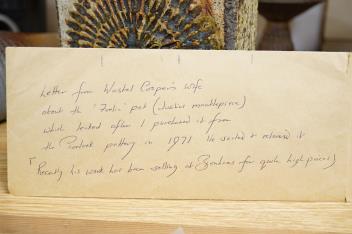 Letter from Waistel Cooper's wife
about the 'Festin' pot (studios mantlepiece)
which leaked after I purchased it from
the Penleat pottery in 1971 He wanted to reseal it
(Recently his work has been selling at Bonhams for quite high prices)